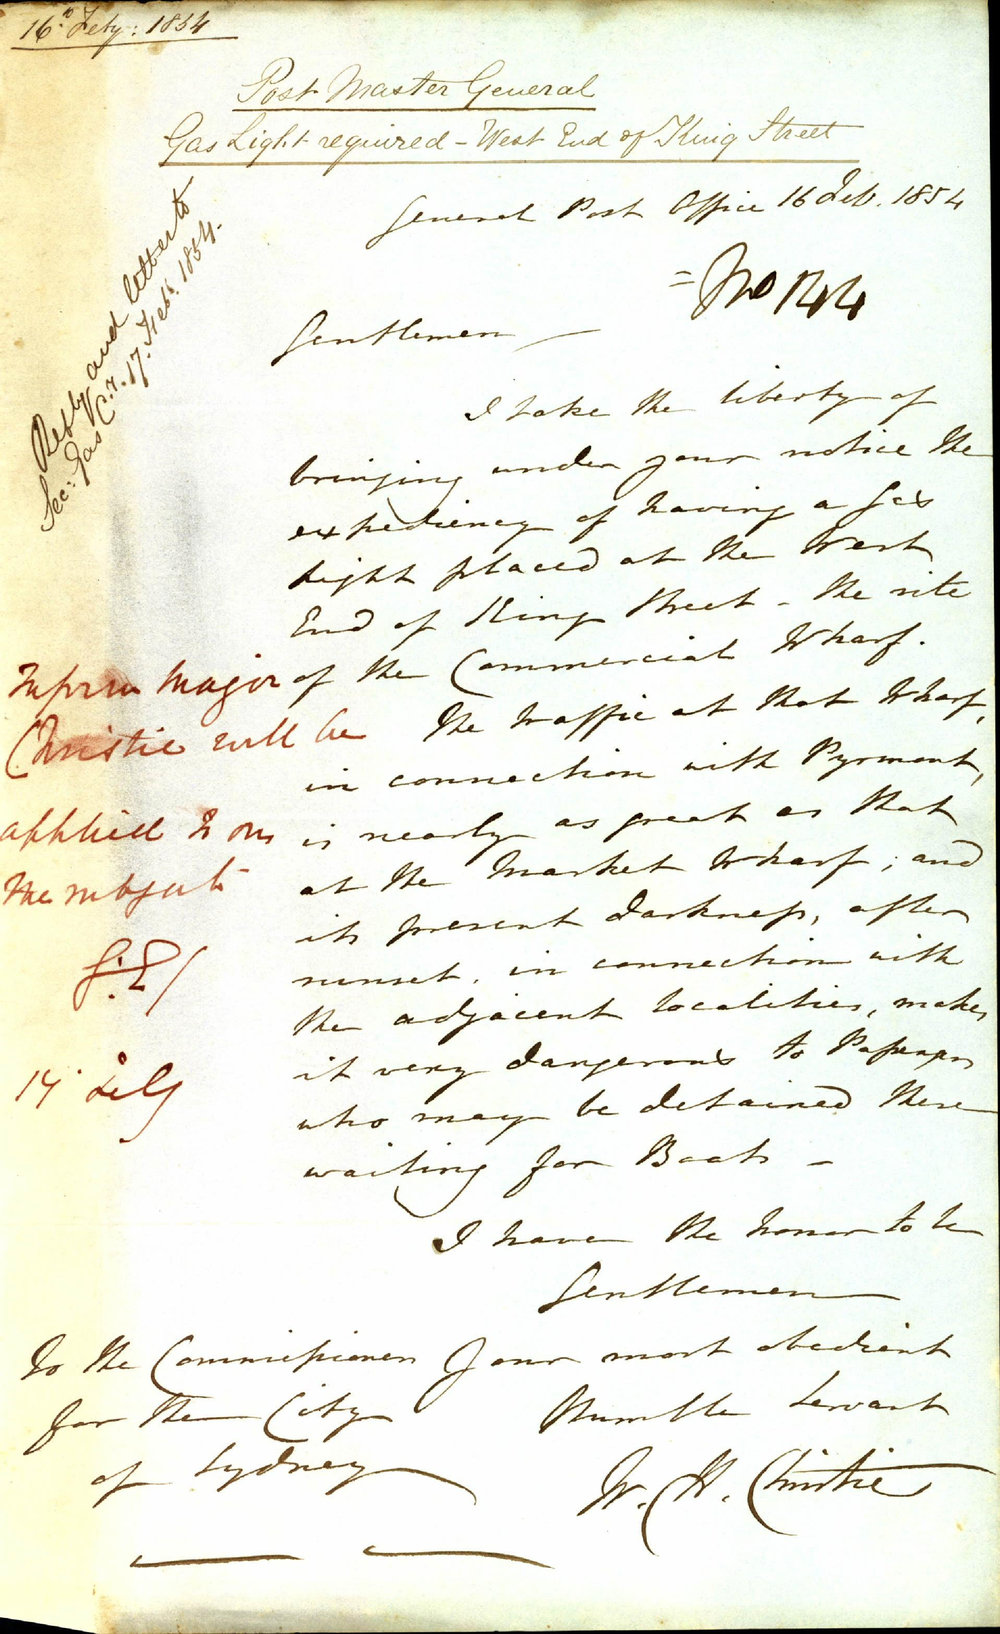 16th Feby: 1854
Post Master General
Gas Light required - West End of King Street
General Post Office 16 Feb. 1854
= No 144
Reply and letter to
Sec: Gas Co. 17. Feb. 1854.
Gentlemen
I take the liberty of
bringing under your notice the
expediency of having a Gas
Light placed at the West
End of King Street - the site
of the Commercial Wharf.
The traffic at that Wharf,
in connection with Pyrmont,
is nearly as great as that
at the Market Wharf; and
its present darkness, after
sunset, in connection with
the adjacent localities, makes
it very dangerous to Passengers
who may be detained there
waiting for Boats -
Inform Major
Christie will be
applied to on
the subject
G.E/
17 Feby
I have the honor to be
Gentlemen
Your most obedient
Humble Servant
W. H. Christie
To the Commissioners
for the City
of Sydney